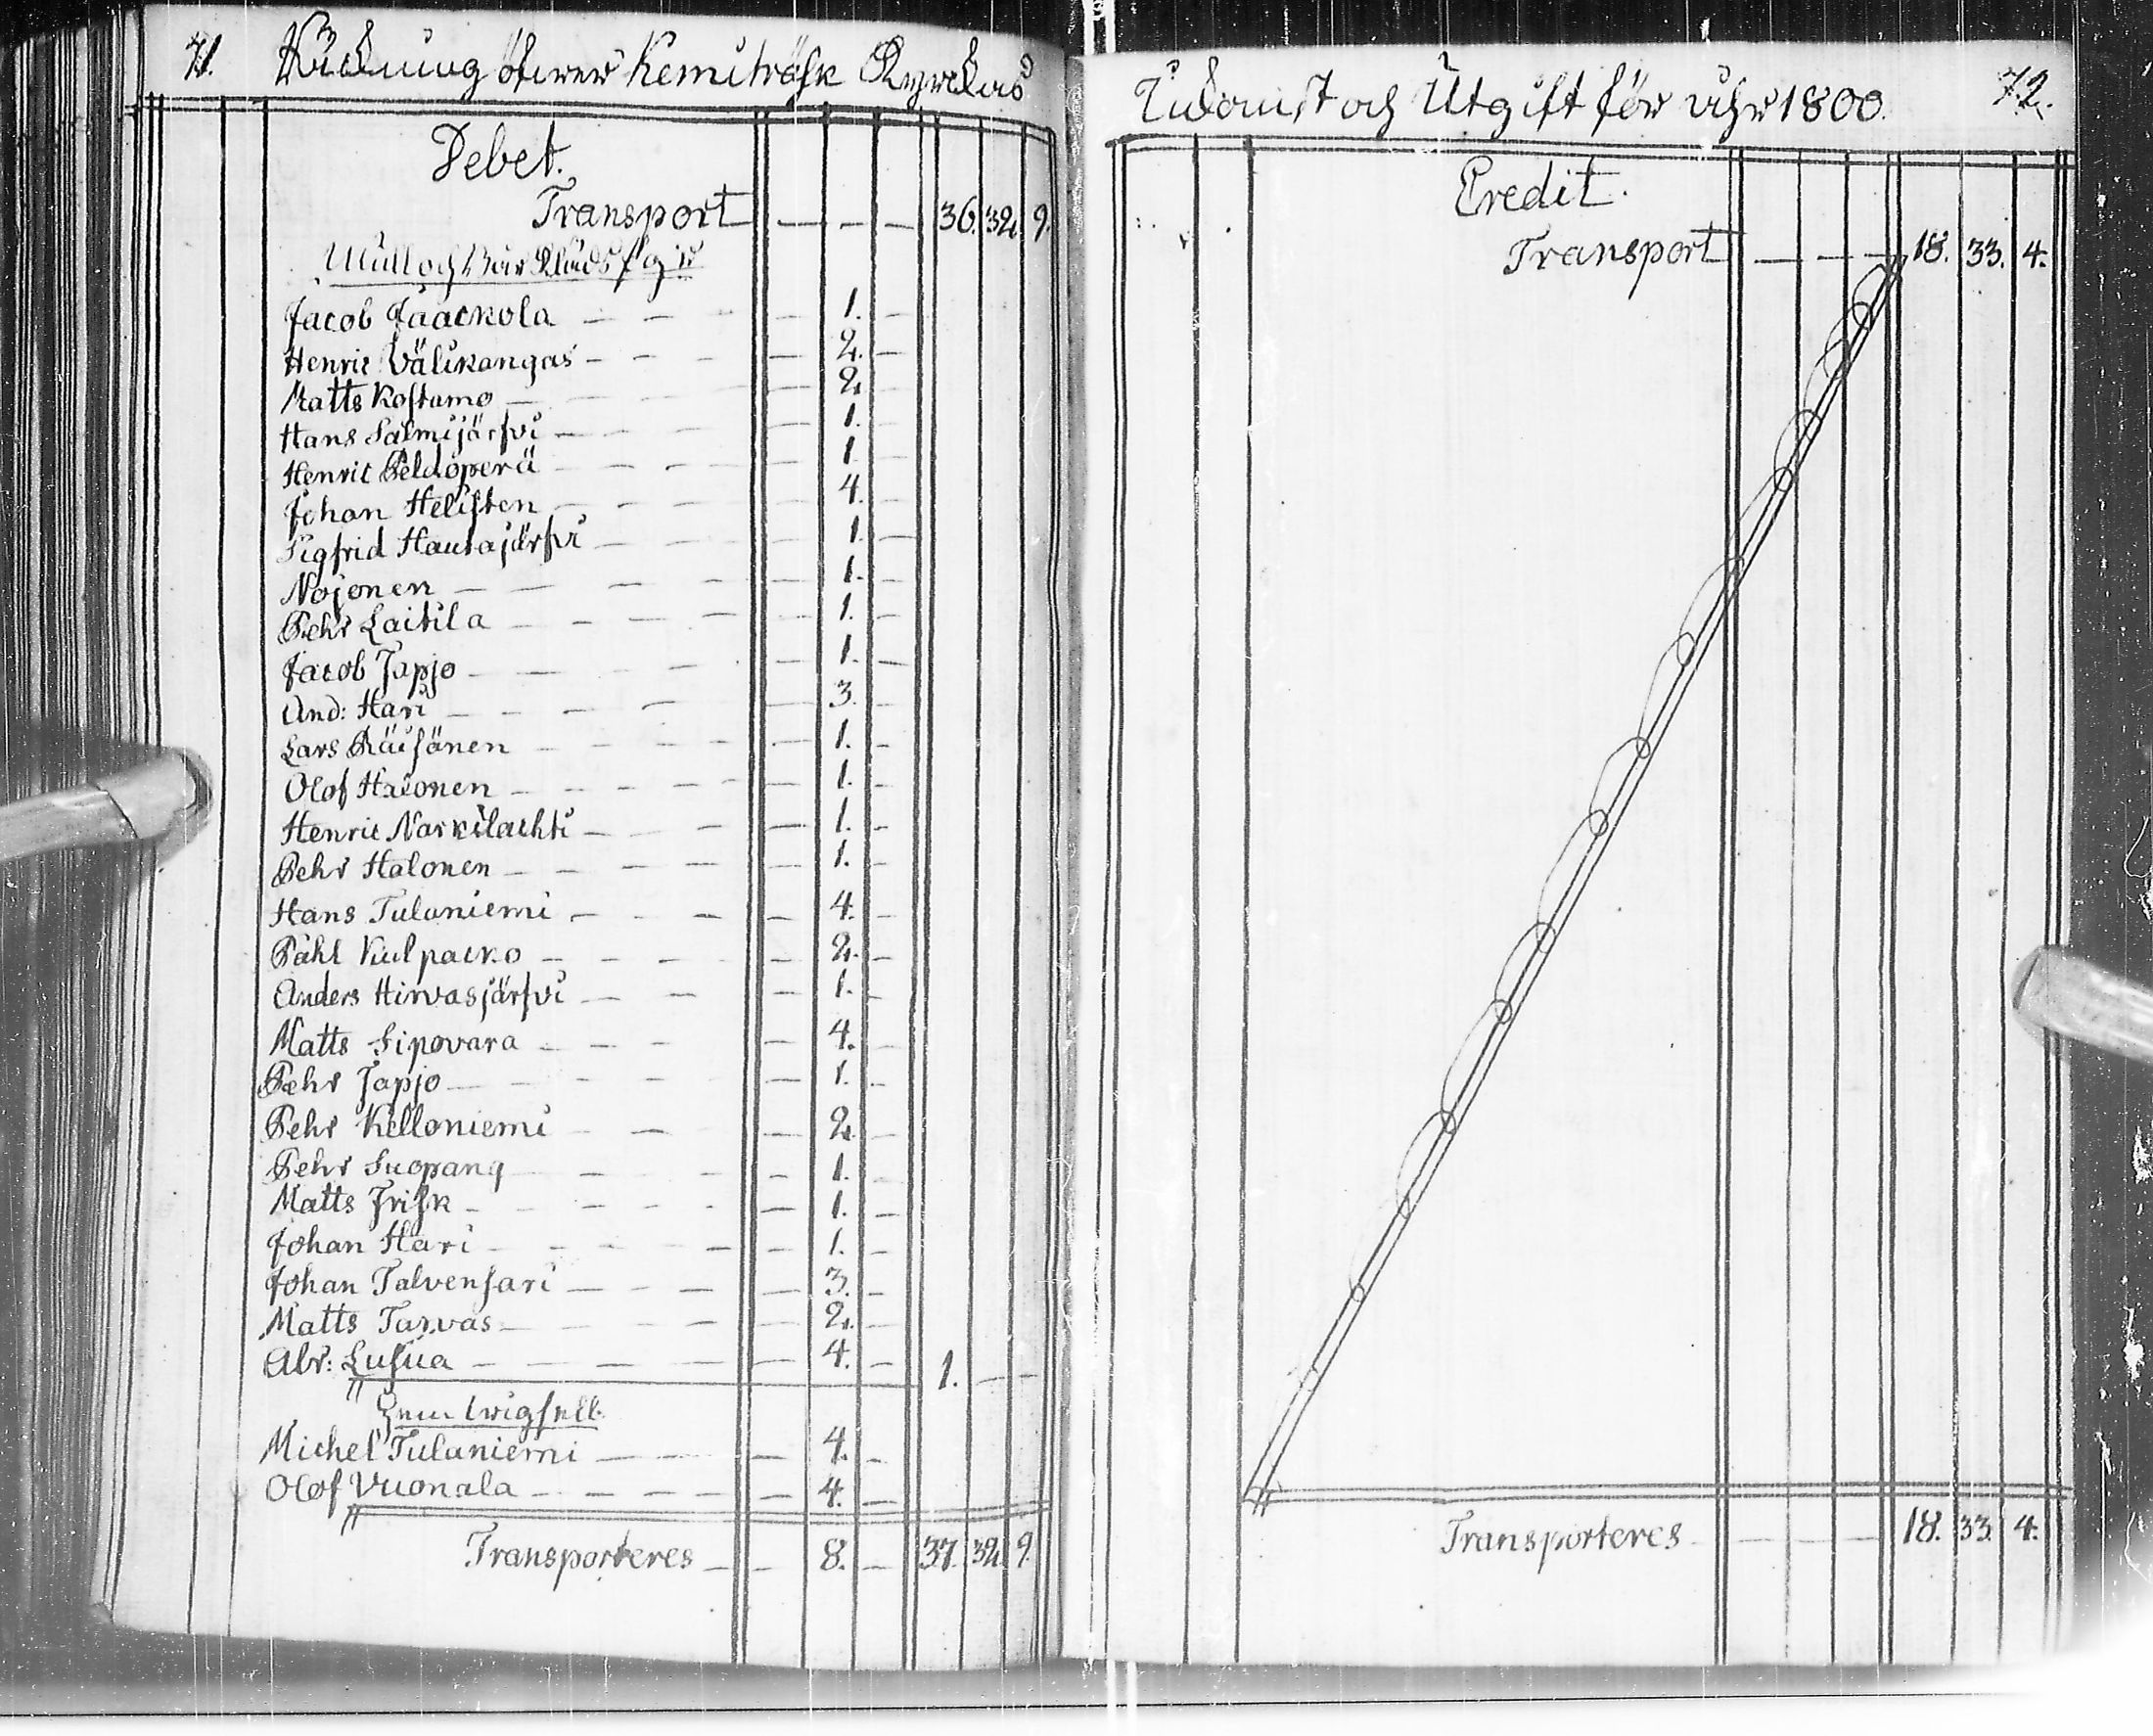 71. Räkning öfwer Kemiträsk Kyrckas
Debet.
Transport — — — 36. 32. 9.
Mull och Bår Kläds
Jacob Jaackola — — — 1. —
Henric Välikangas — — — 2. —
Matts Kostamo — — — 2. —
Hans Salmijärfvi — — — 1. —
Henric Peldoperä — — — 1. —
Johan Helisten — — — 4. —
Sigfrid Hautajärfvi — — — 1. —
Nojonen — — — 1. —
Pehr Laitila — — — 1. —
Jacob Japjo — — — 1. —
And: Hari — — — 3. —
Lars Räisänen — — — 1. —
Olof Halonen — — — 1. —
Henric Narkilachti — — — 1. —
Pehr Halonen — — — 1. —
Hans Tulaniemi — — — 4. —
Påhl Kulpacko — — — 2. —
Anders Hirvasjärfvi — — — 1. —
Matts Sipovara — — — 4. —
Pehr Japjo — — — 1. —
Pehr Kelloniemi — — — 2. —
Pehr Suopang — — — 1. —
Matts Frisk — — — 1. —
Johan Hari — — — 1. —
Johan Talvensari — — — 3. —
Matts Tarvas — — — 2. —
Abr: Lusua — — — 4. — 1. — —
Michel Tulaniemi — — — 4. —
Olof Vuonala — — — 4. —
Transporteres — — 8. — 37. 32. 9.
Inkomst och Utgift för åhr 1800. 72.
Credit.
Transport — — — 18. 33. 4.
Transporteres — — — 18. 33. 4.